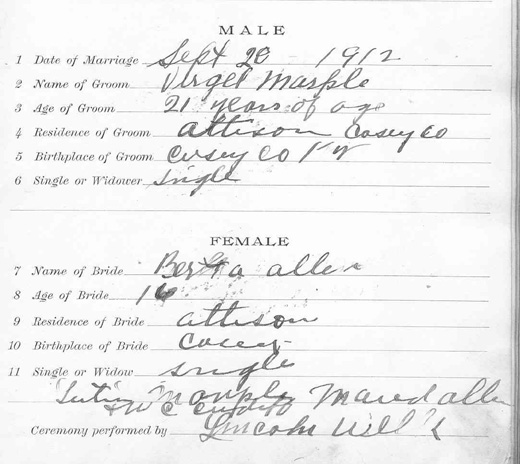 MALE
1 Date of Marriage Sept 28 1912
2 Name of Groom Virgel Marple
3 Age of Groom 21 years of age
4 Residence of Groom attison Casey co
5 Birthplace of Groom Casey co Ky
6 Single or Widower single
FEMALE
7 Name of Bride Bertha allen
8 Age of Bride 16
9 Residence of Bride attison
10 Birthplace of Bride Casey
11 Single or Widow single
Marple allen
& W C
Ceremony performed by Lincoln Wells